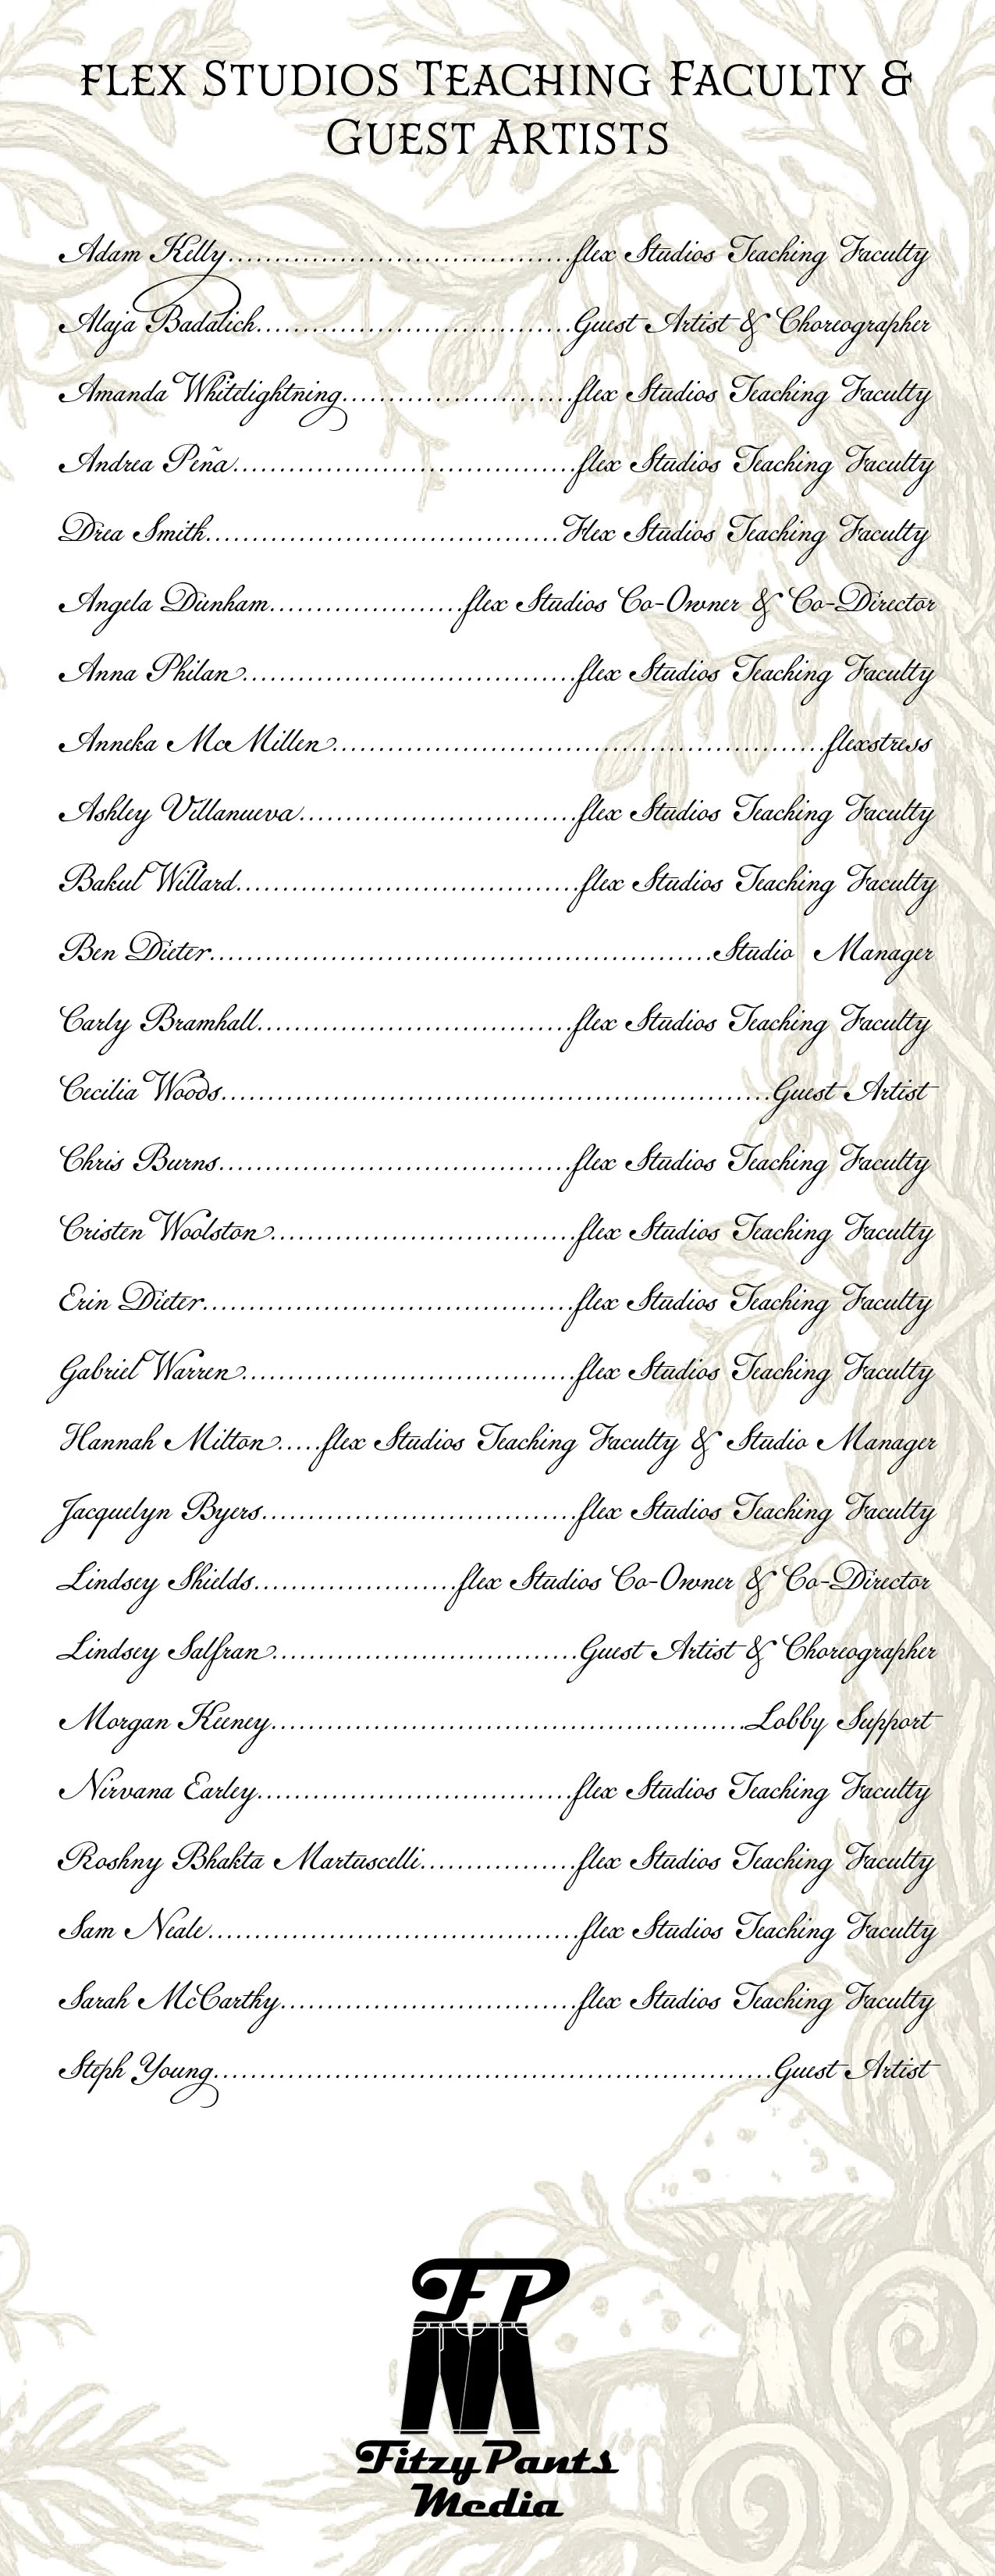 flex Studios Teaching Faculty &
Guest Artists
Adam Kelly.....................................flex Studios Teaching Faculty
Alaja Badalich..................................Guest Artist & Choreographer
Amanda Whitelightning.........................flex Studios Teaching Faculty
Andrea Peña.....................................flex Studios Teaching Faculty
Drea Smith......................................Flex Studios Teaching Faculty
Angela Dunham.....................flex Studios Co-Owner & Co-Director
Anna Philan....................................flex Studios Teaching Faculty
Anneka McMillen.....................................................flexstress
Ashley Villanueva..............................flex Studios Teaching Faculty
Bakul Willard.....................................flex Studios Teaching Faculty
Ben Dieter......................................................Studio Manager
Carly Bramhall..................................flex Studios Teaching Faculty
Cecilia Woods...........................................................Guest Artist
Chris Burns......................................flex Studios Teaching Faculty
Cristen Woolston.................................flex Studios Teaching Faculty
Erin Dieter........................................flex Studios Teaching Faculty
Gabriel Warren....................................flex Studios Teaching Faculty
Hannah Milton.....flex Studios Teaching Faculty & Studio Manager
Jacquelyn Byers..................................flex Studios Teaching Faculty
Lindsey Shields......................flex Studios Co-Owner & Co-Director
Lindsey Salfran.................................Guest Artist & Choreographer
Morgan Keeney...................................................Lobby Support
Nirvana Earley..................................flex Studios Teaching Faculty
Roshny Bhakta Martuscelli................flex Studios Teaching Faculty
Sam Neale........................................flex Studios Teaching Faculty
Sarah McCarthy................................flex Studios Teaching Faculty
Steph Young............................................................Guest Artist
FP
M
FitzyPants
Media